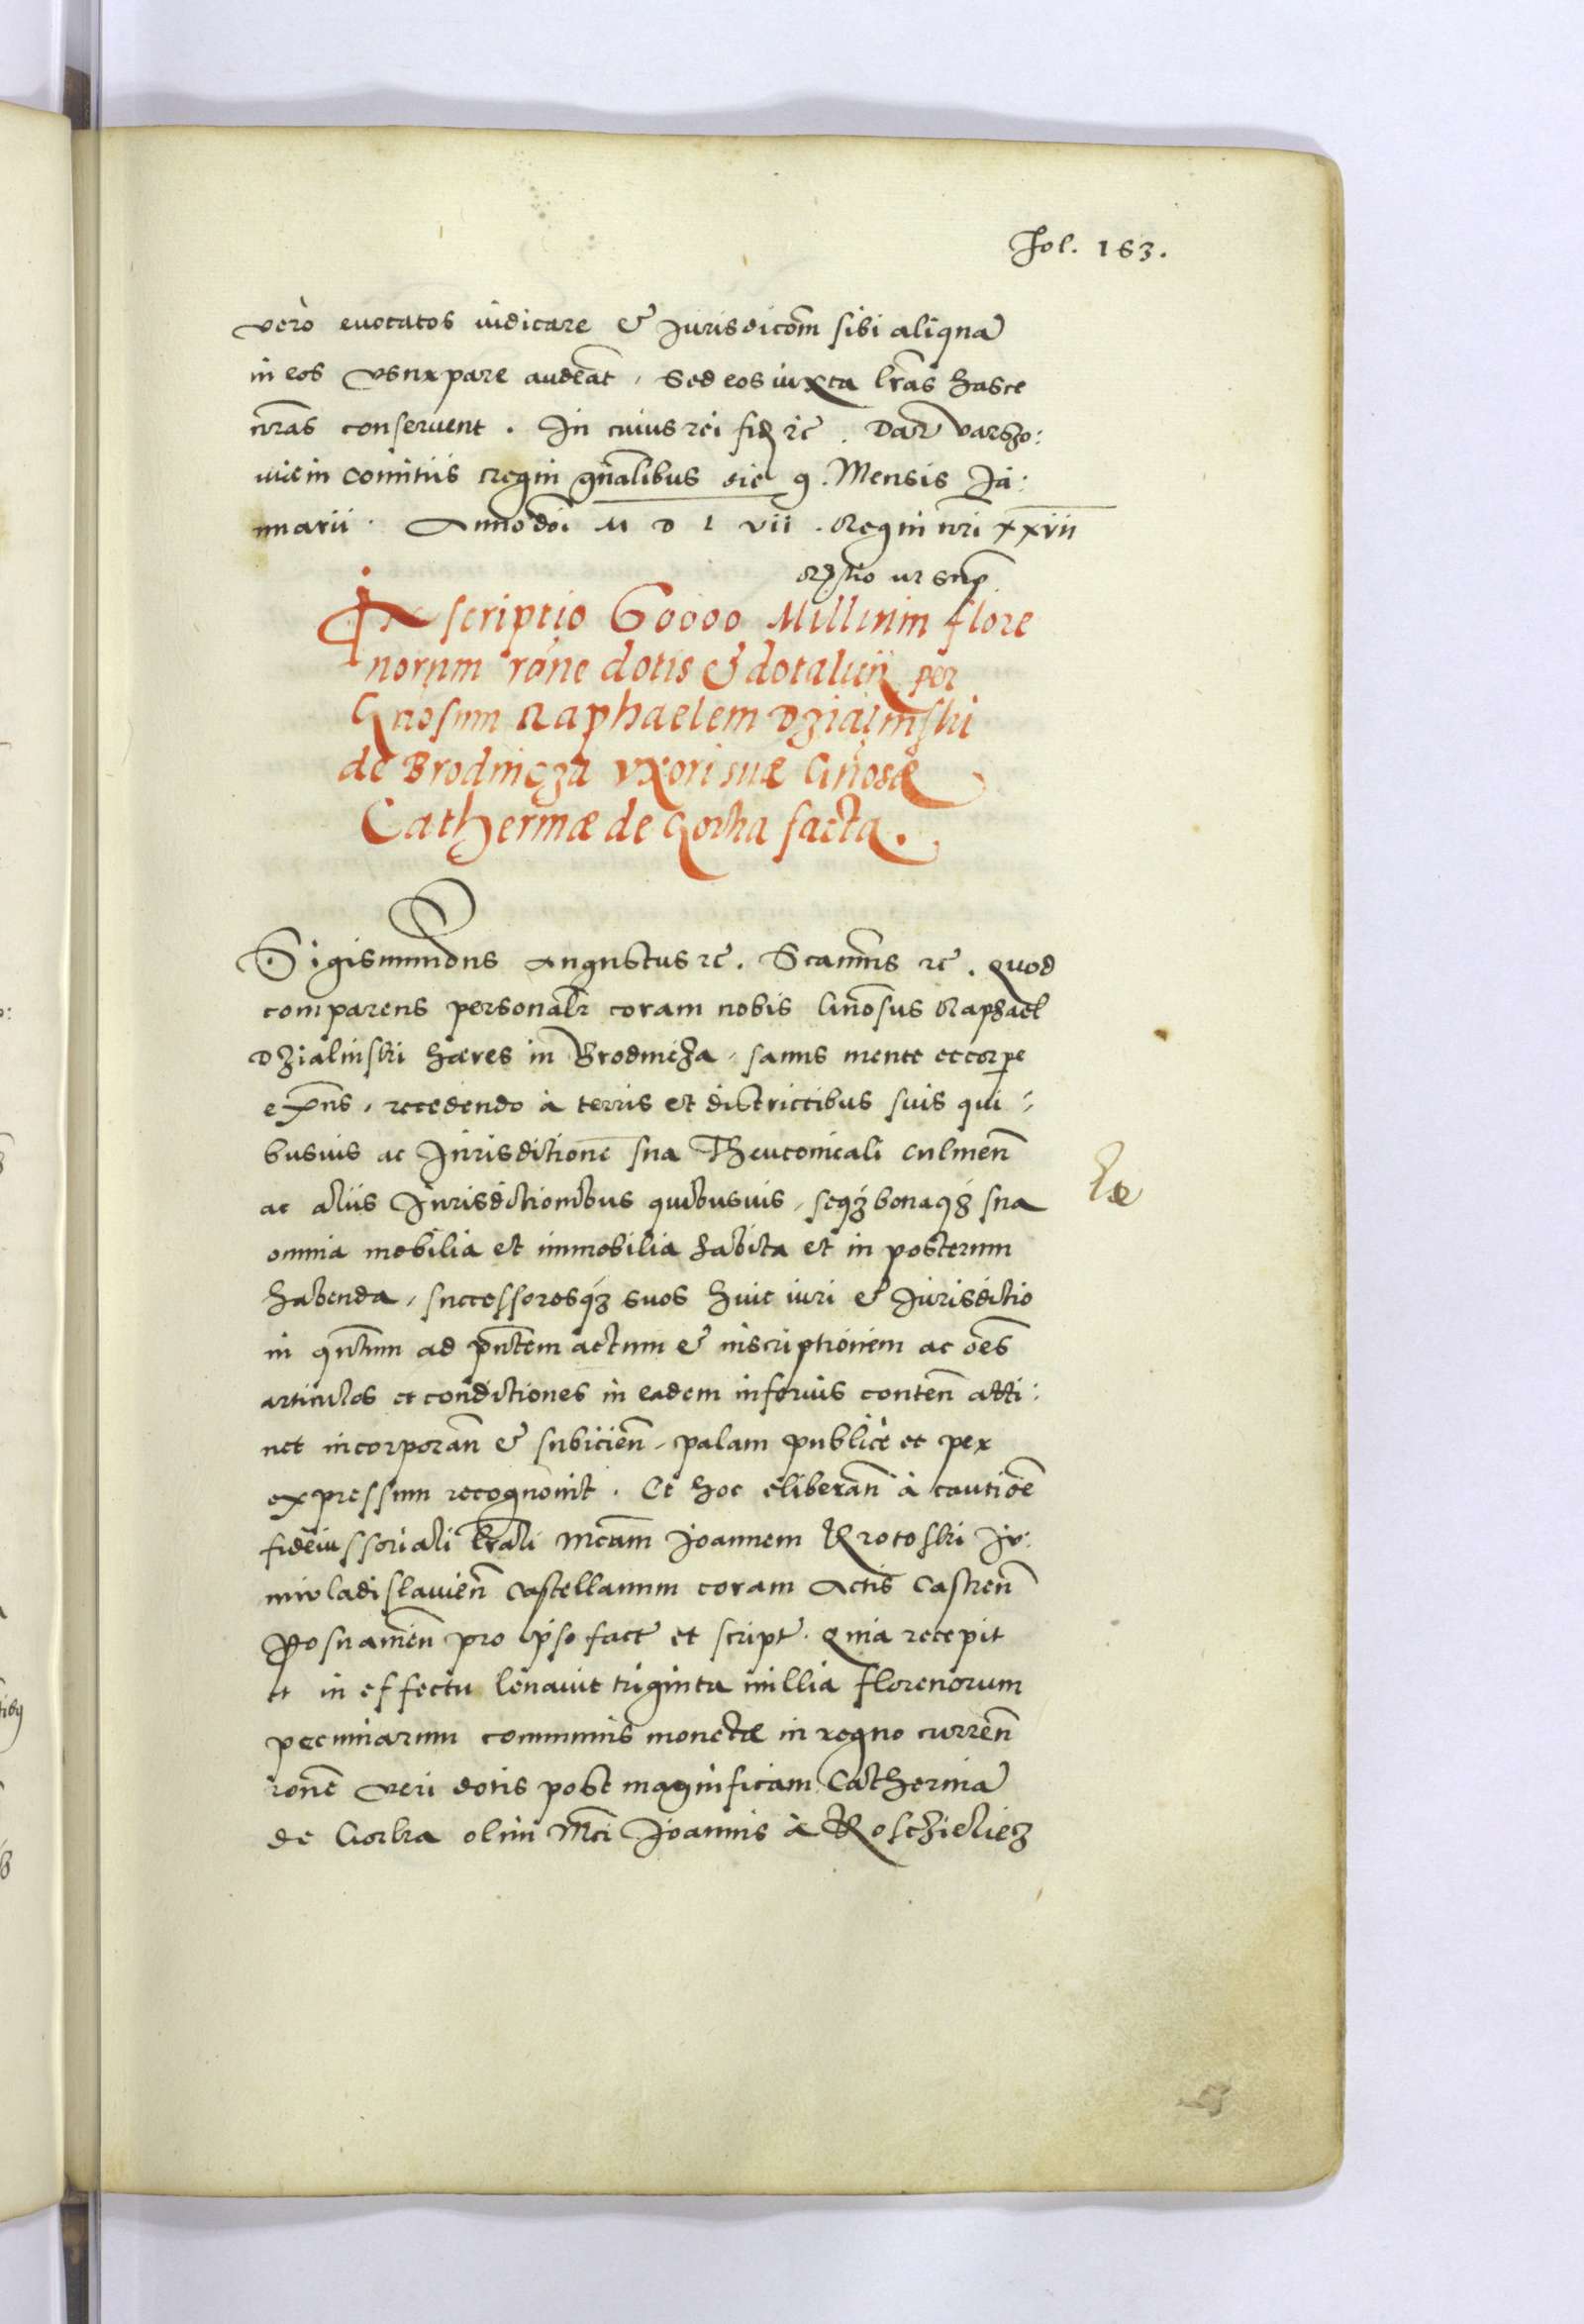 Fol. 163.
vero euocatos iudicare & Jurisdicom̄ sibi aliquā
in eos vsurpare audeāt, Sed eos iuxta lrās hasce
nrās conseruent. In cuius rei fid zc̄. Dat̄ Varszo:
uie in Comitiis regni gnālibus die 9. Mensis Ja:
nuarii. Anno doī M D L vii. Regni nrī xxvii
Rltio ut sup̄
Inscriptio 60000 Millium flore
norum rōne dotis & dotalicii per
Gnosum Raphaelem Dzialinski
de Brodnicza vxori suæ Gnosæ
Catherinæ de Gorka facta.
Sigismundus Augustus zc̄. Scam̄us zc̄. quod
comparens personalr̄ coram nobis Gnōsus Raphael
Dzialinski hæres in Brodnicza, sanus mente et corpe
exn̄s, recedendo à terris et districtibus suis qui:
busuis ac Jurisditione sua Theutonicali Culmen̄
ac aliis Jurisditionibus quibusuis, seqz bonaqz sua
omnia mobilia et immobilia habita et in posterum
habenda, successoresqz suos huic iuri & Jurisditio
in qntum ad pntem actum & inscriptionem ac oēs
articulos et conditiones in eadem inferius conten̄ atti:
net incorporan̄ & subiicien̄, palam publicè et per
expressum recognouit. Et hoc eliberan̄ à cautiōe
fideiussoriali Mcām Joannem Krotoski Ju:
niuladislauien̄ Castellanum coram Actis Castren̄
Posnanien̄ pro ipso fact̄ et script̄. Quia recepit
et in effectu leuauit triginta millia Florenorum
pecuniarum communis monetæ in regno curren̄
rone veri dotis post magnificam Catherinā
de Gorka olim Mci Joannis à Koschieliez